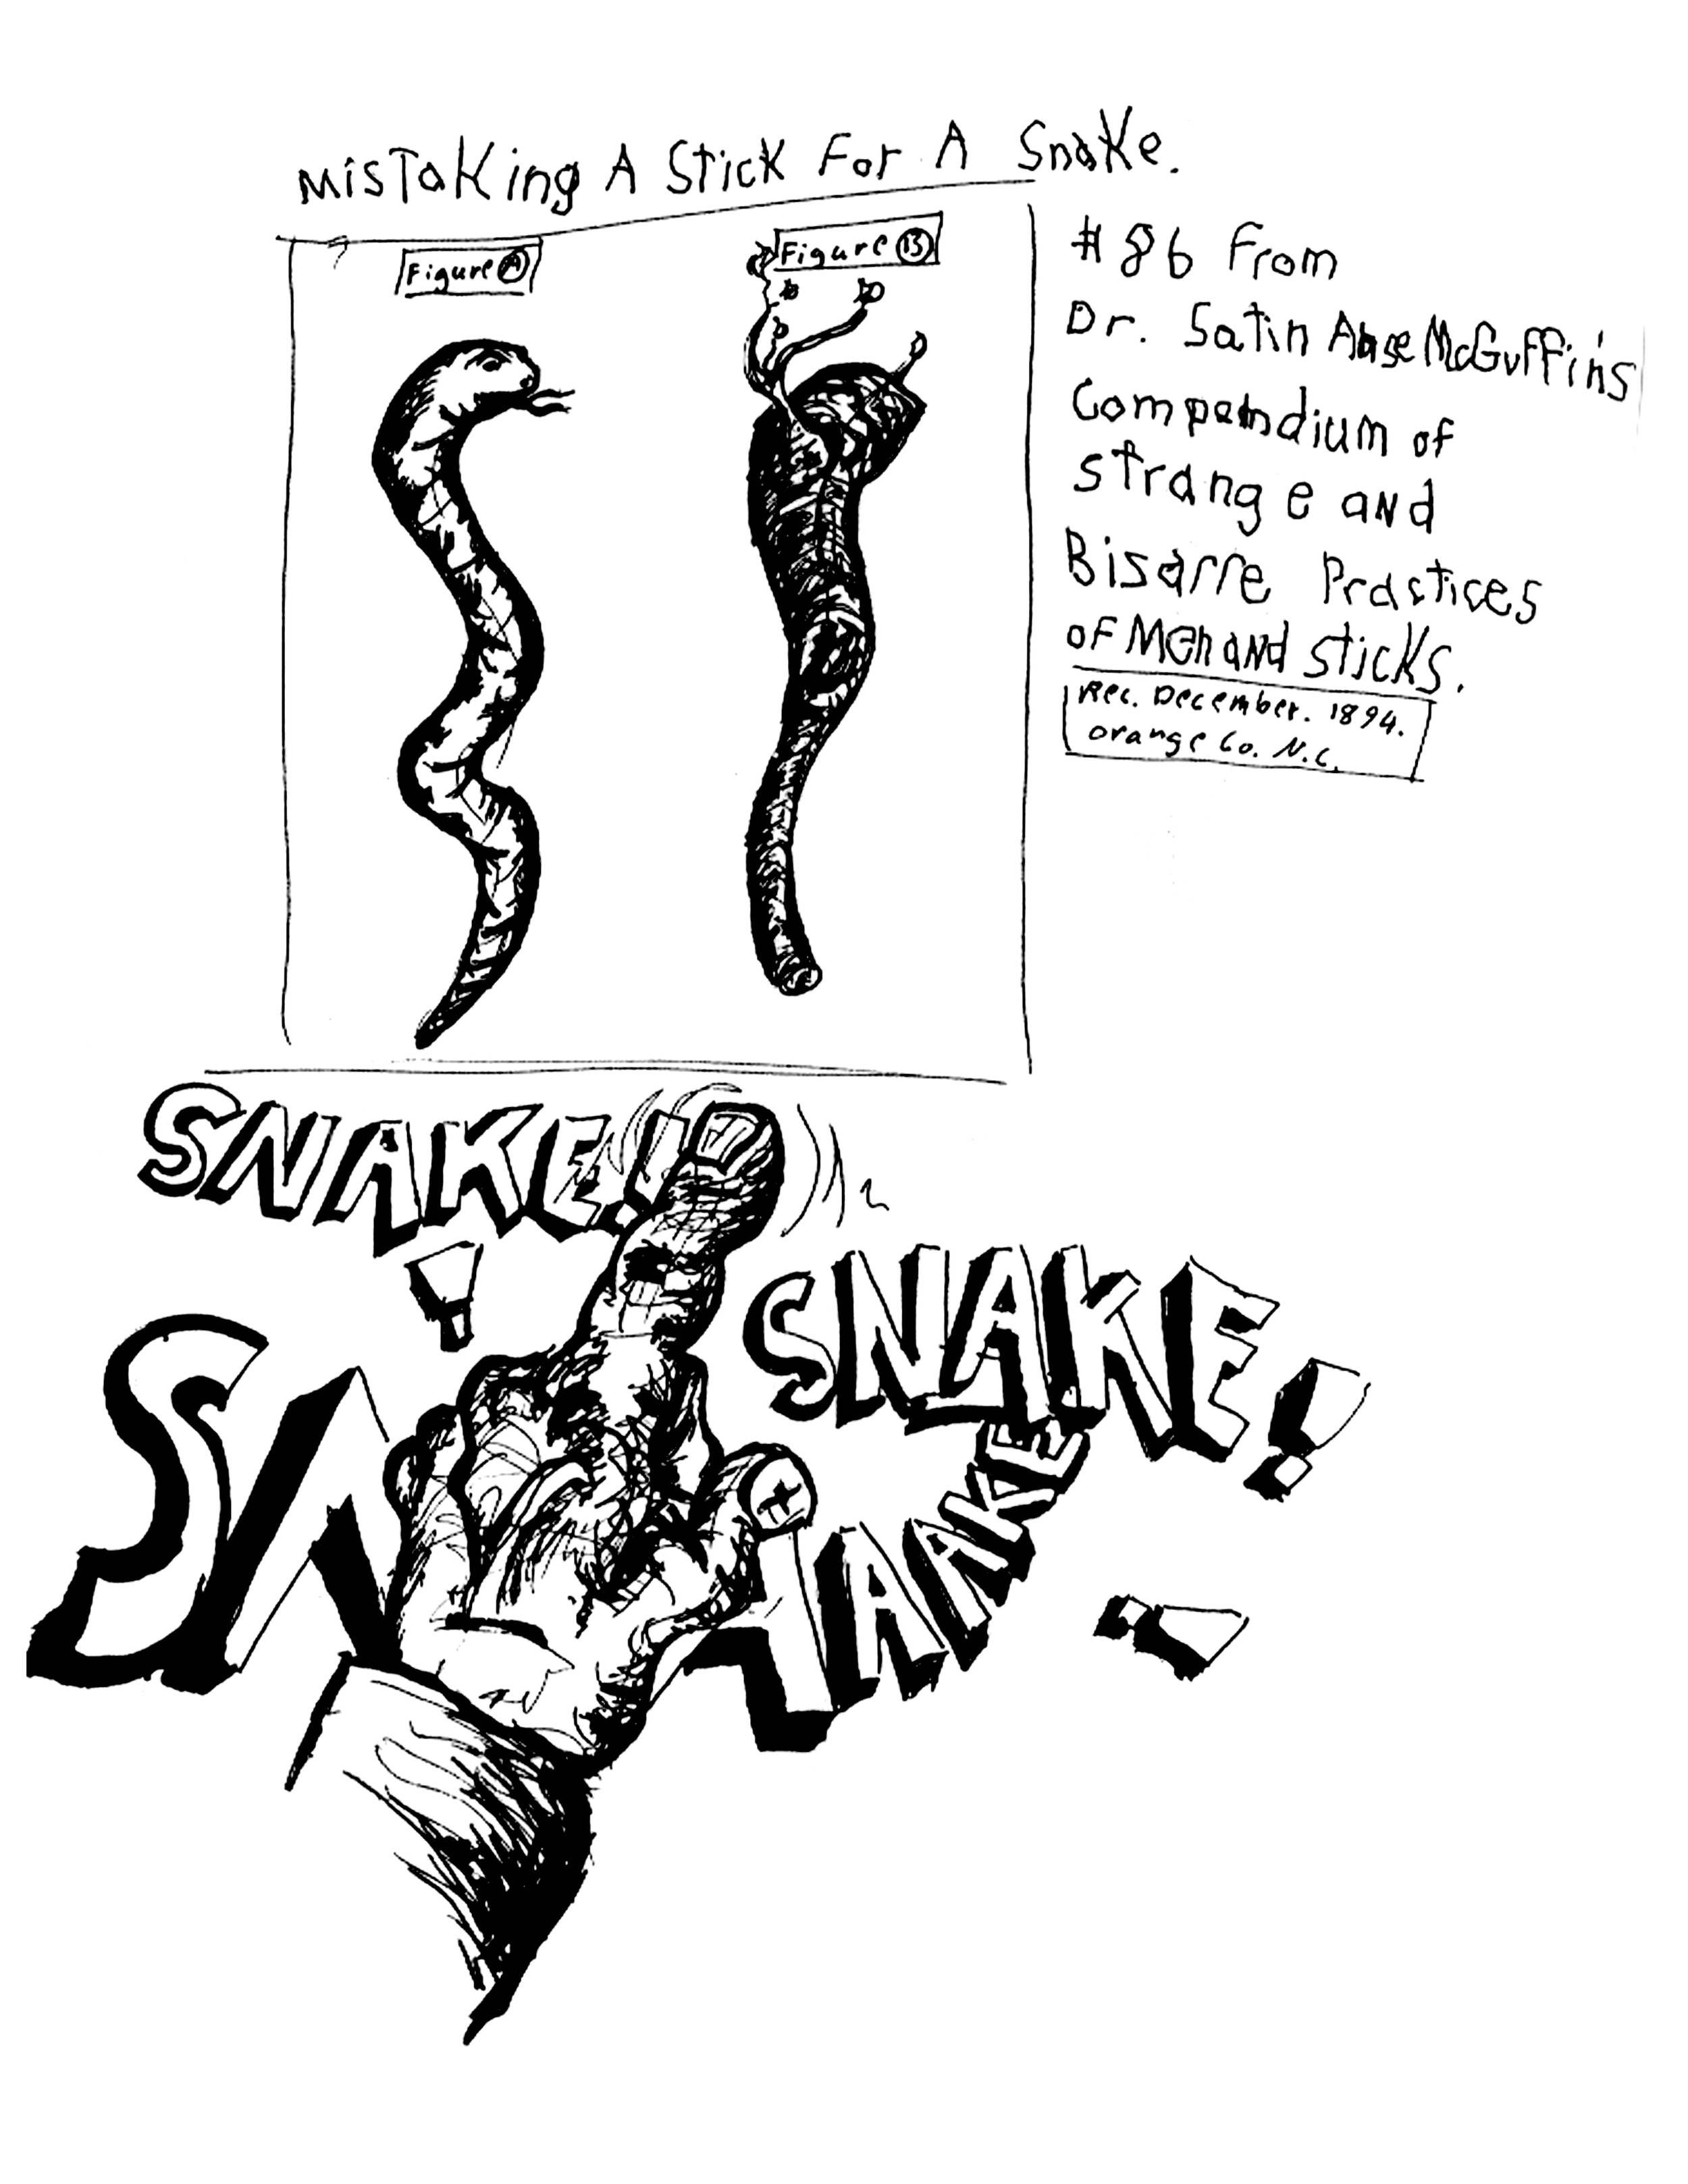 MisTaKing A Stick For A Snake.
Figure A
Figure B
# 86 From
Dr. Satin McGuffin's
Compendium of
strange and
Bisarre Practices
of Men and sticks.
Rec. December. 1894.
Orange Co. N.C.
SNAKE!
SNAKE!